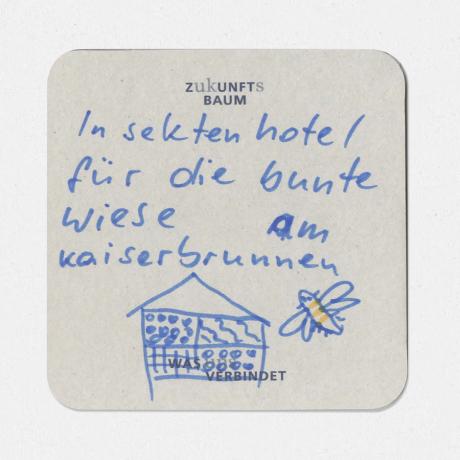 ZukUNFTs
BAUM
Insektenhotel
für die bunte
wiese am
kaiserbrunnen
WAS uns
VERBINDET